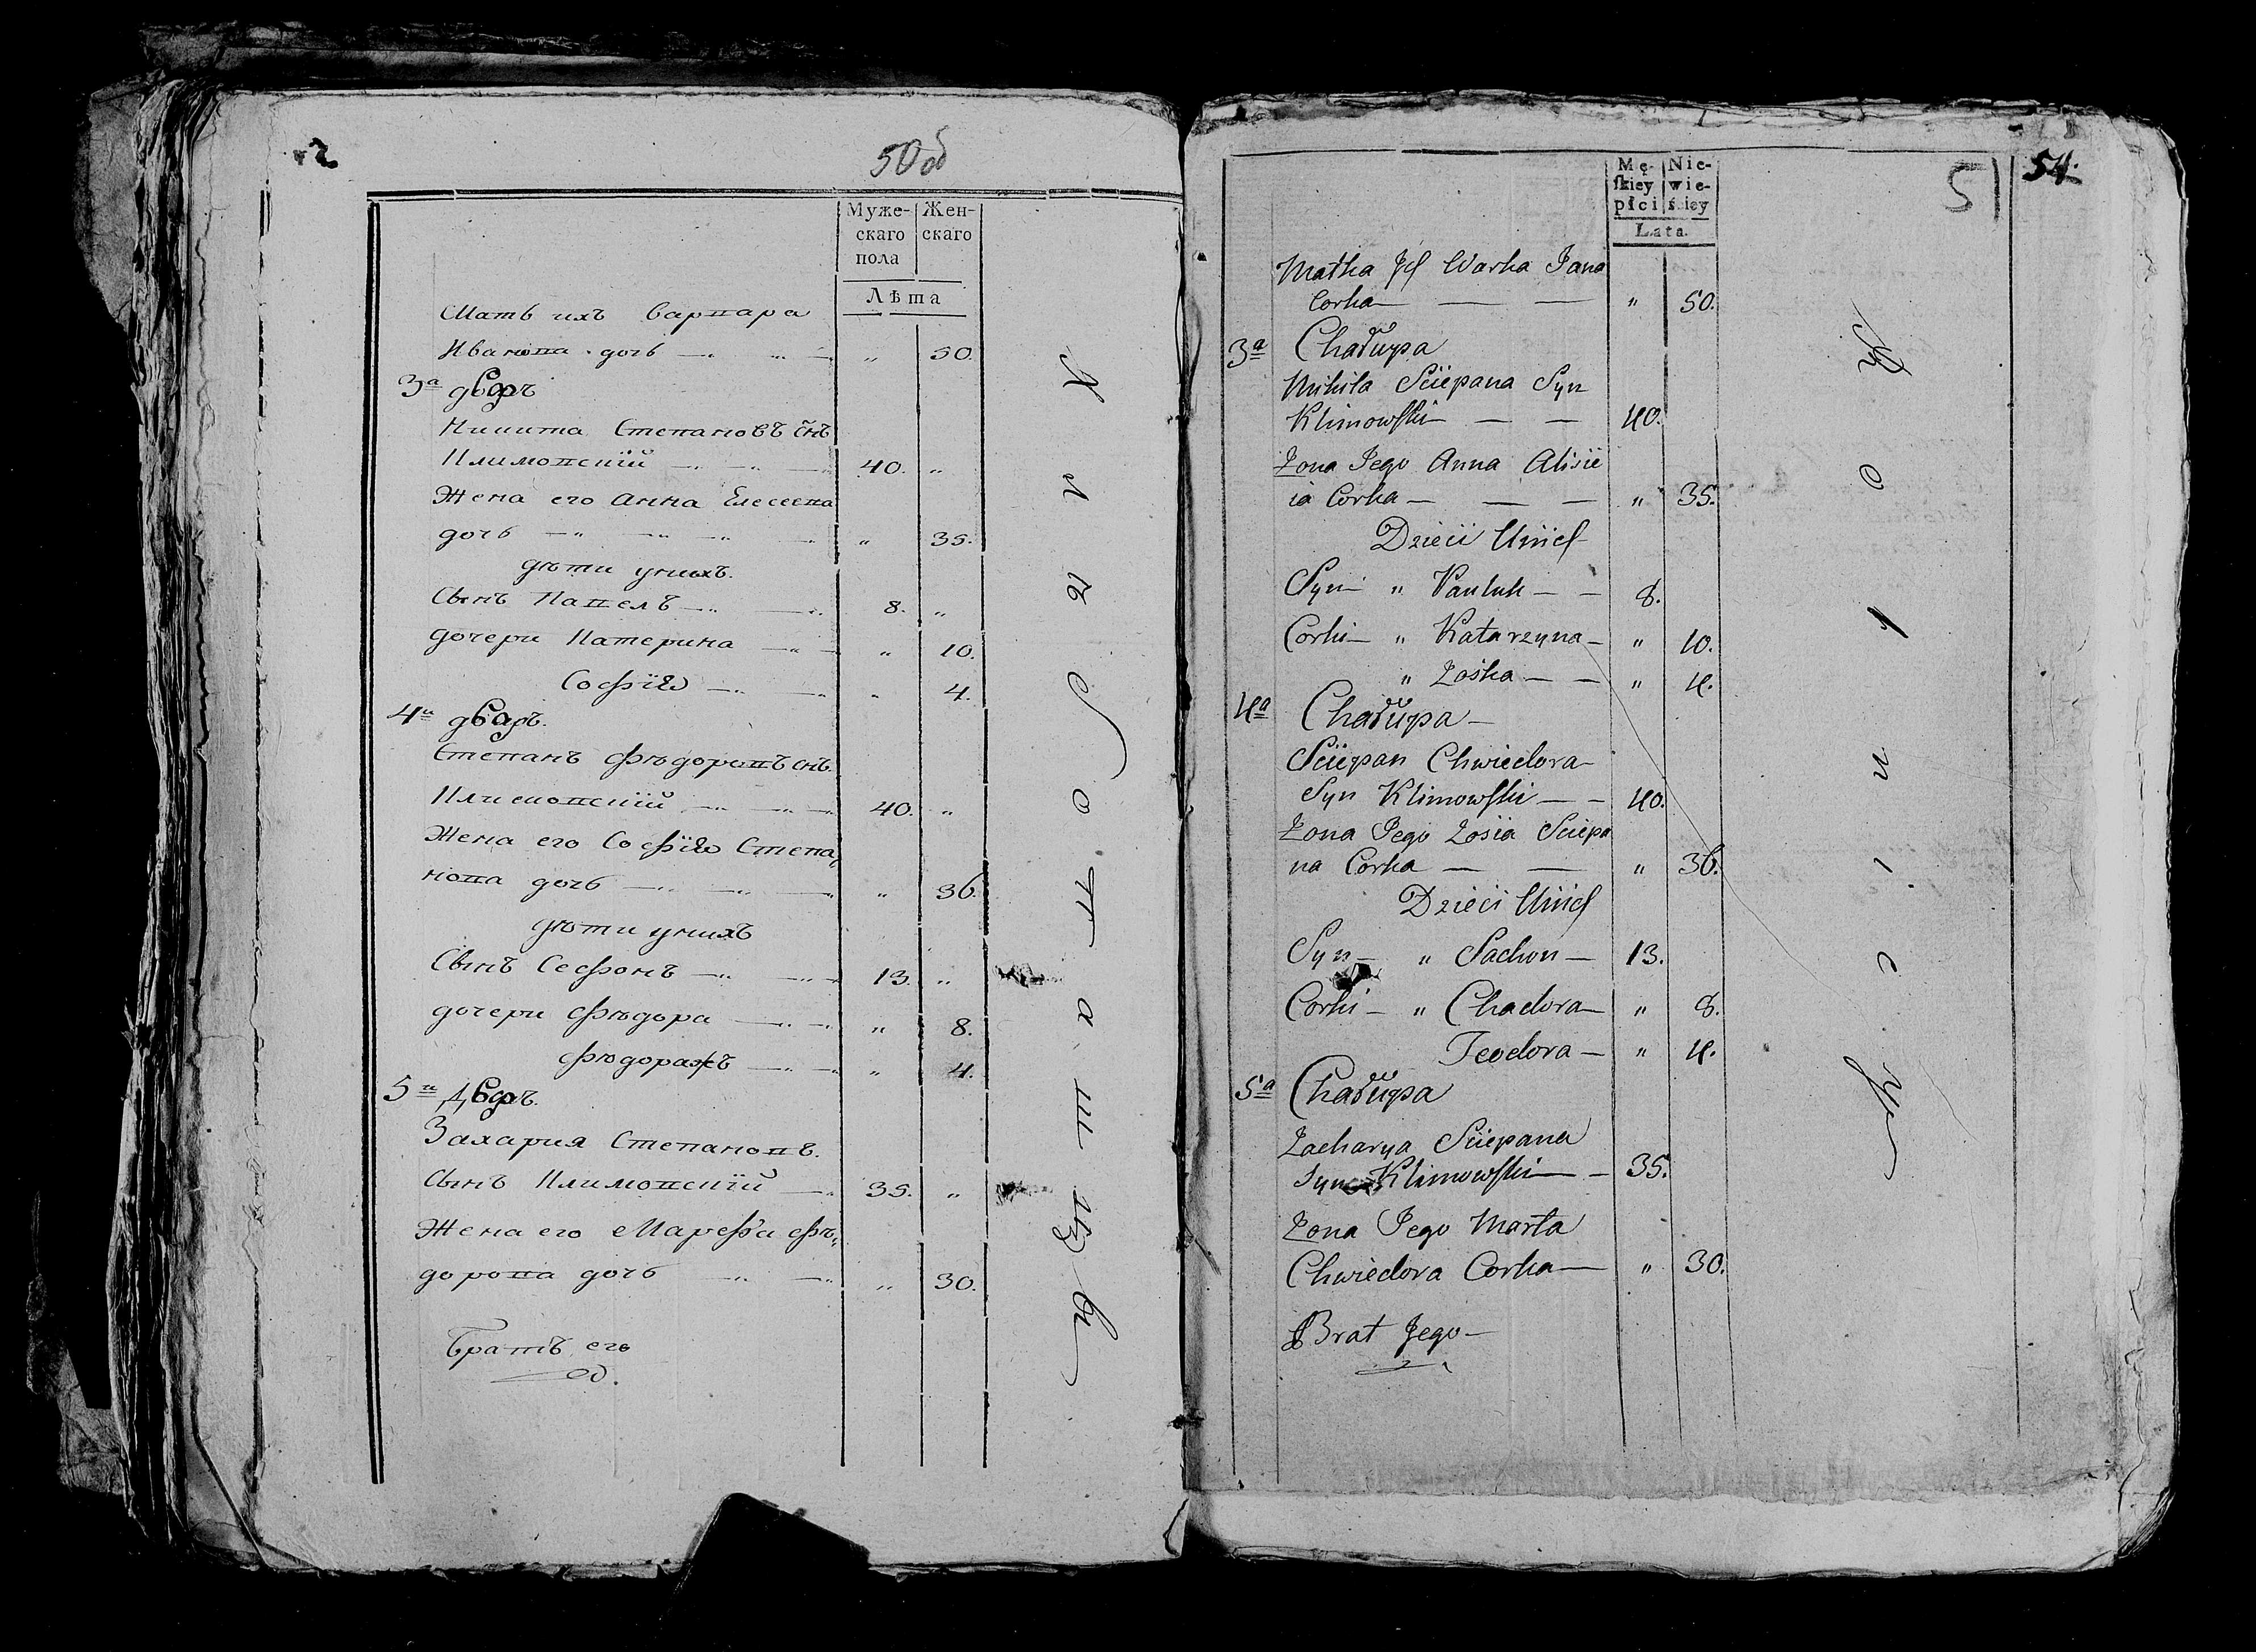 50 об
Муже-
скаго
пола
Жен-
скаго
Лѣта
Мать ихъ Варвара
Иванова дочь — " 50.
3й дворъ
Никита Степановъ снъ
Климовскій — 40. "
Жена его Анна Елесеева
дочь — " 35.
дѣти у нихъ.
Сынъ Павелъ — 8. "
дочери Катерина — " 10.
Софія — " 4.
4й дворъ.
Степанъ Фѣдоровъ снъ.
Климовскій — 40. "
Жена его Софія Степа,,
нова дочь — " 36.
дѣти у нихъ
Сынъ Сефонъ — 13. "
дочери Фѣдора — " 8.
Фѣдора жъ — " 4.
5й Дворъ.
Захария Степановъ.
Сынъ Климовскій — 35. "
Жена его Марефа Фѣ,,
дорова дочь — " 30.
Братъ его
51
54.
Mę-
ſkiey
płci
Nie-
wie-
śiey
Lata.
Matka Ich Warka Jana
Corka — — " 50.
3a Chałupa
Mikita Sciepana Syn
Klimowſki — — 40.
Żona Jego Anna Alisie
ia Corka — — " 35.
Dzieci Unich
Syn " Pauluk — — 8.
Corki — " Katarzyna — " 10.
" Zośka — — " 4.
4a Chałupa —
Sciepan Chwiedora
Syn Klimowſki — — 40.
Żona Jego Zosia Sciepa
na Corka — — " 36.
Dzieci Unich
Syn — " Sachon — 13.
Corki — " Chadora — " 8.
Teodora — " 4.
5a Chałupa
Zacharya Sciepana
Syn Klimowſki — — 35.
Żona Jego Marta
Chwiedora Corka — " 30.
Brat Jego —